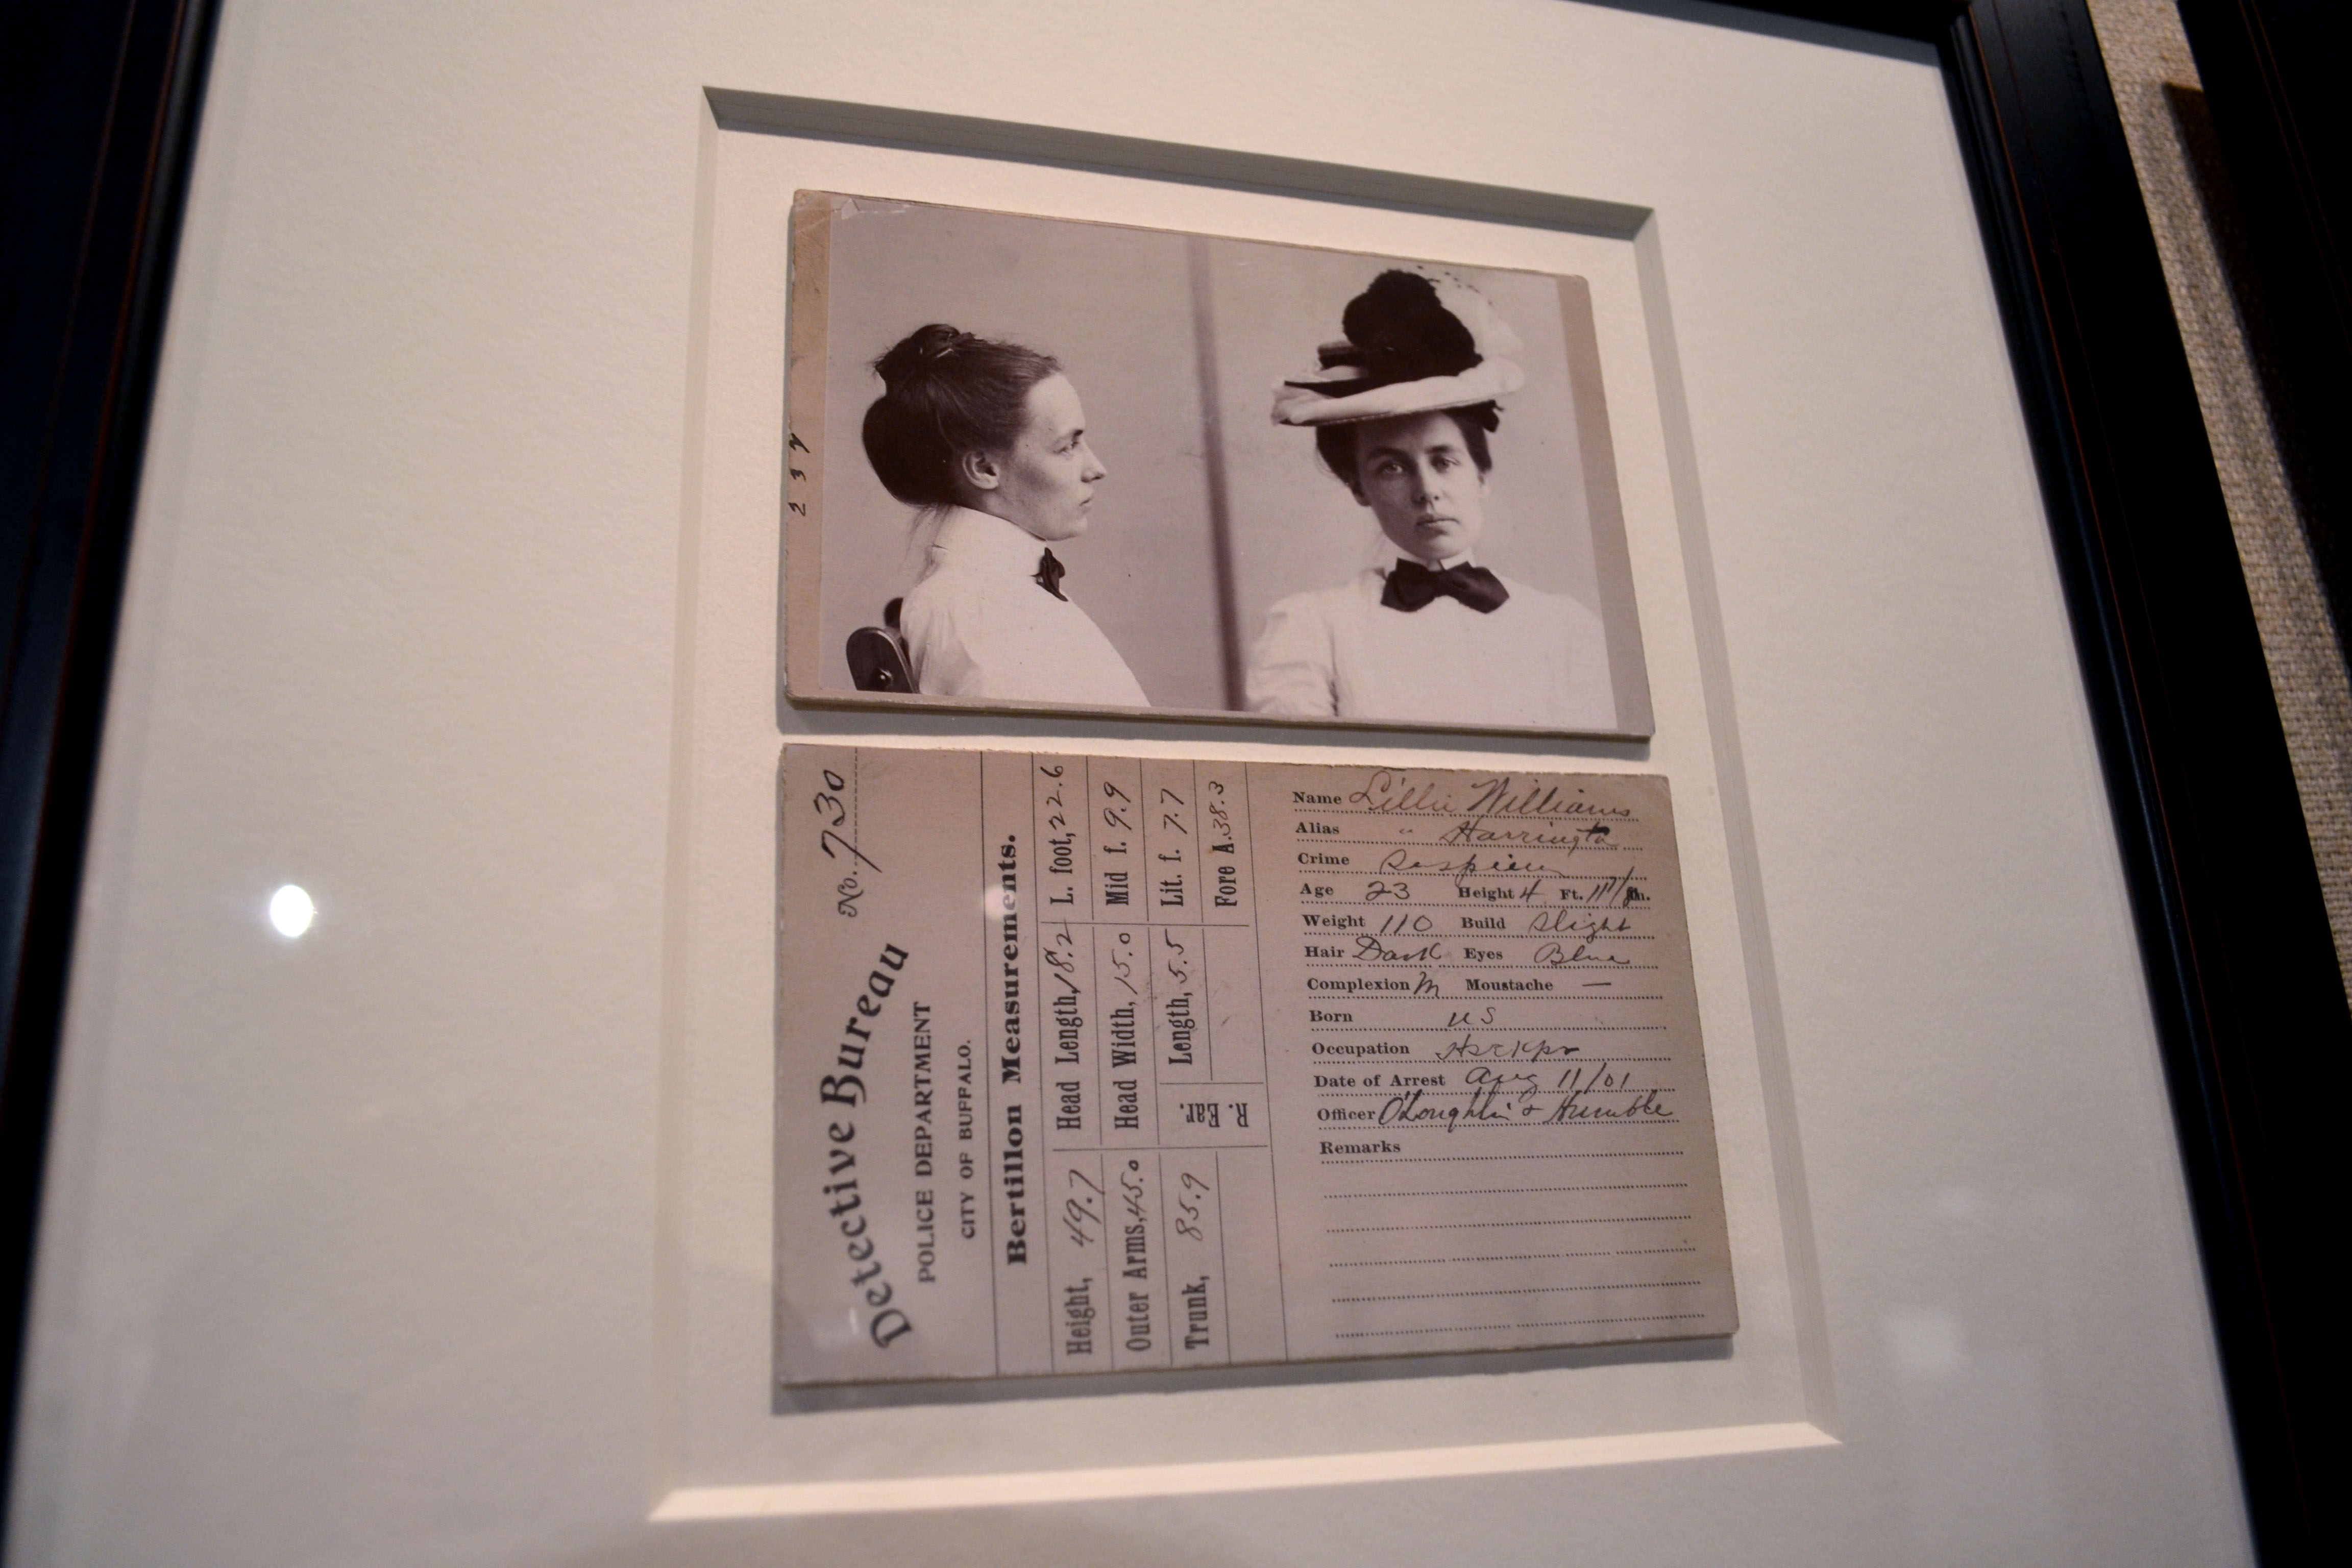 237
No. 730
Detective Bureau
POLICE DEPARTMENT
CITY OF BUFFALO.
Bertillon Measurements.
Height, 49.7 Head Length, 18.2 L. foot, 22.6
Outer Arms, 45.0 Head Width, 15.0 Mid f. 9.9
Trunk, 85.9 R. Ear. Length, 5.5 Lit. f. 7.7
Fore A. 38.3
Name Lillie Williams
Alias " Harringto
Crime Suspicion
Age 23 Height 4 Ft. In.
Weight 110 Build Slight
Hair Dark Eyes Blue
Complexion M Moustache —
Born US
Occupation Hskpr
Date of Arrest Aug 11/01
Officer O'Loughlin & Humble
Remarks